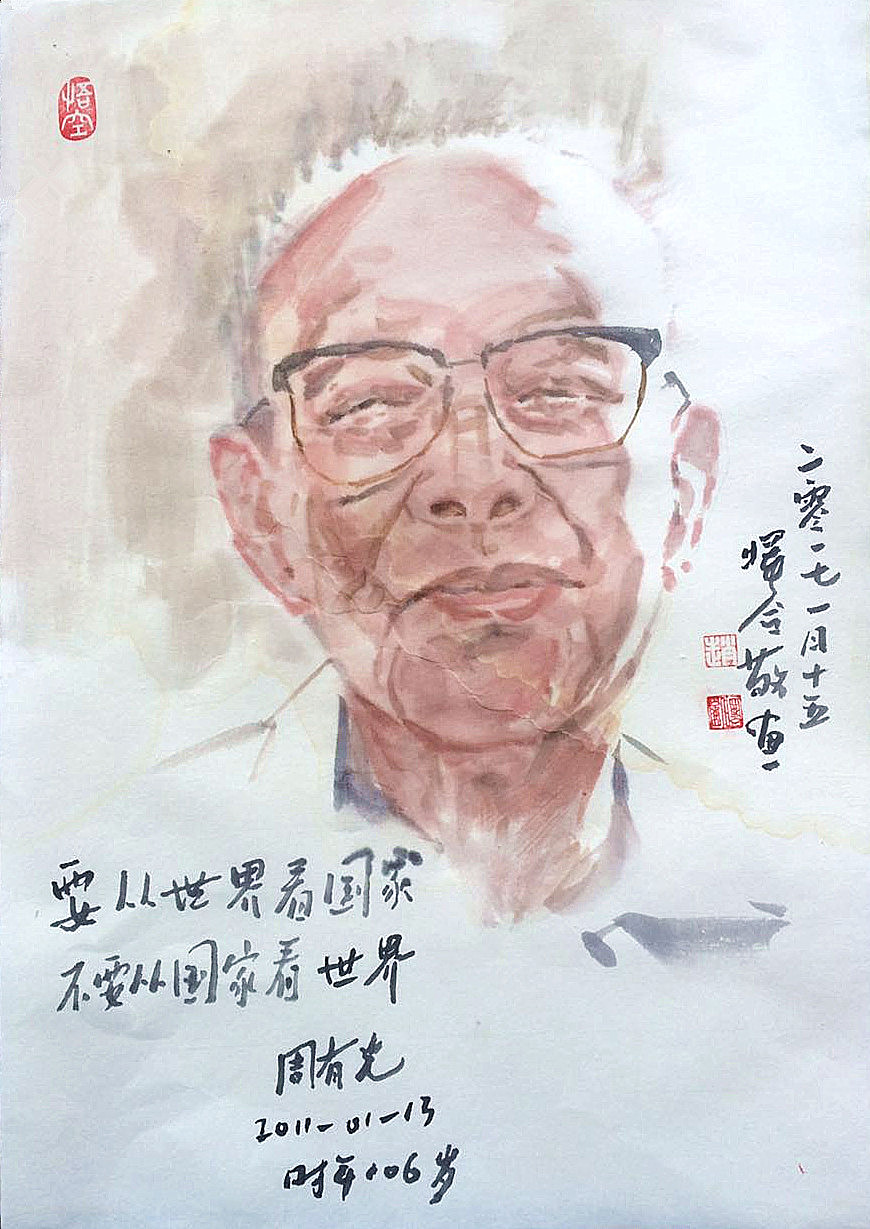 悟空
二零一七一月十五
敬画
要从世界看国家
不要从国家看世界
周有光
2011-01-13
时年106岁